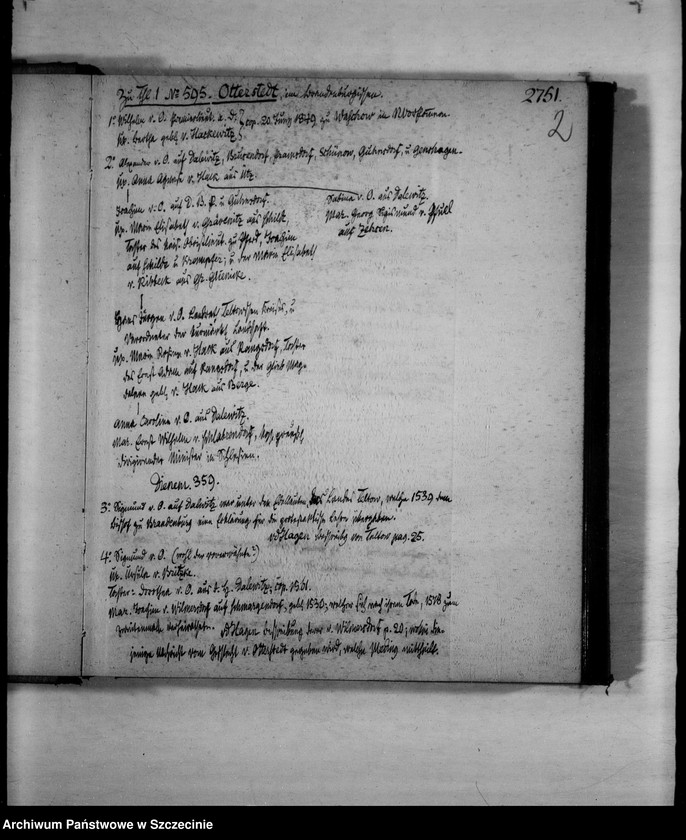 Zu Th. 1 No 595. Otterstedt, im Brandenburgischen.
2751.
2
1. Wilhelm v. O. Premierlieut. a. D. cop. 20. Juny 1849 zu Waschow in
Ux. Bertha geb. v. Hackewitz
2. Alexander v. O. auf Dalewitz, Bauendorf, Schünow, Gühnsdorf, u Genshagen.
Ux. Anna v. Hack aus Utz.
Joachim v. O. auf D. B. u Gühnsdorf.
Ux. Maria Elisabeth v. Grävenitz aus Schilde
Tochter des Kais. Obristlieut. zu Pferd, Joachim
auf Schilde u Krampfer, u der Maria Elisabeth
v. Ribbeck aus Gr. Glienicke.
Sabina v. O. aus Dalewitz.
Mar. Georg Sigismund v. Pfuel
auf Jahren.
Hans Jürgen v. O. Landrath Teltowschen Kreises, u
Verordneter der Kurmärk. Landschaft.
Ux. Maria v. Hack aus Rangsdorf, Tochter
des Ernst Adam auf Rangsdorf, u der Mag-
dalena geb. v. Hack aus Berge.
Anna Carolina v. O. aus Dalewitz.
Mar. Ernst Wilhelm v. Schlabrendorf, preuß.
dirigirender Minister in Schlesien.
Dienem. 359.
3. Sigmund v. O. auf Dalewitz war unter den Edelleuten des Landes Teltow, welche 1539 dem
Bischof zu Brandenburg eine Erklärung für die protestantische Lehre übergaben.
v Hagen Beschreib. von Teltow pag. 25.
4. Sigmund v. O. (wohl der vorerwähnte?)
Ux. Ursula v.
Tochter: Dorothea v. O. aus d. H. Dalewitz, cop. 1561.
Mar. Joachim v. Wilmersdorf auf Schmargendorf, geb. 1530, welcher sich nach ihrem Tode, 1578 zum
zweitenmale verheirathete.
v Hagen Beschreibung derer v. Wilmersdorf p. 20, woselbst die-
jenige Nachricht vom Geschlecht v. Otterstedt gegeben wird, welche mittheilt.
Archiwum Państwowe w Szczecinie